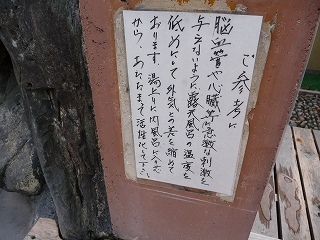 ご参考に
脳血管や心臓等に急激な刺激を
与えないように露天風呂の温度を
低めにして外気との差を縮めて
おります。湯上りに内風呂に入って
から、あたたまって活性化して下さい